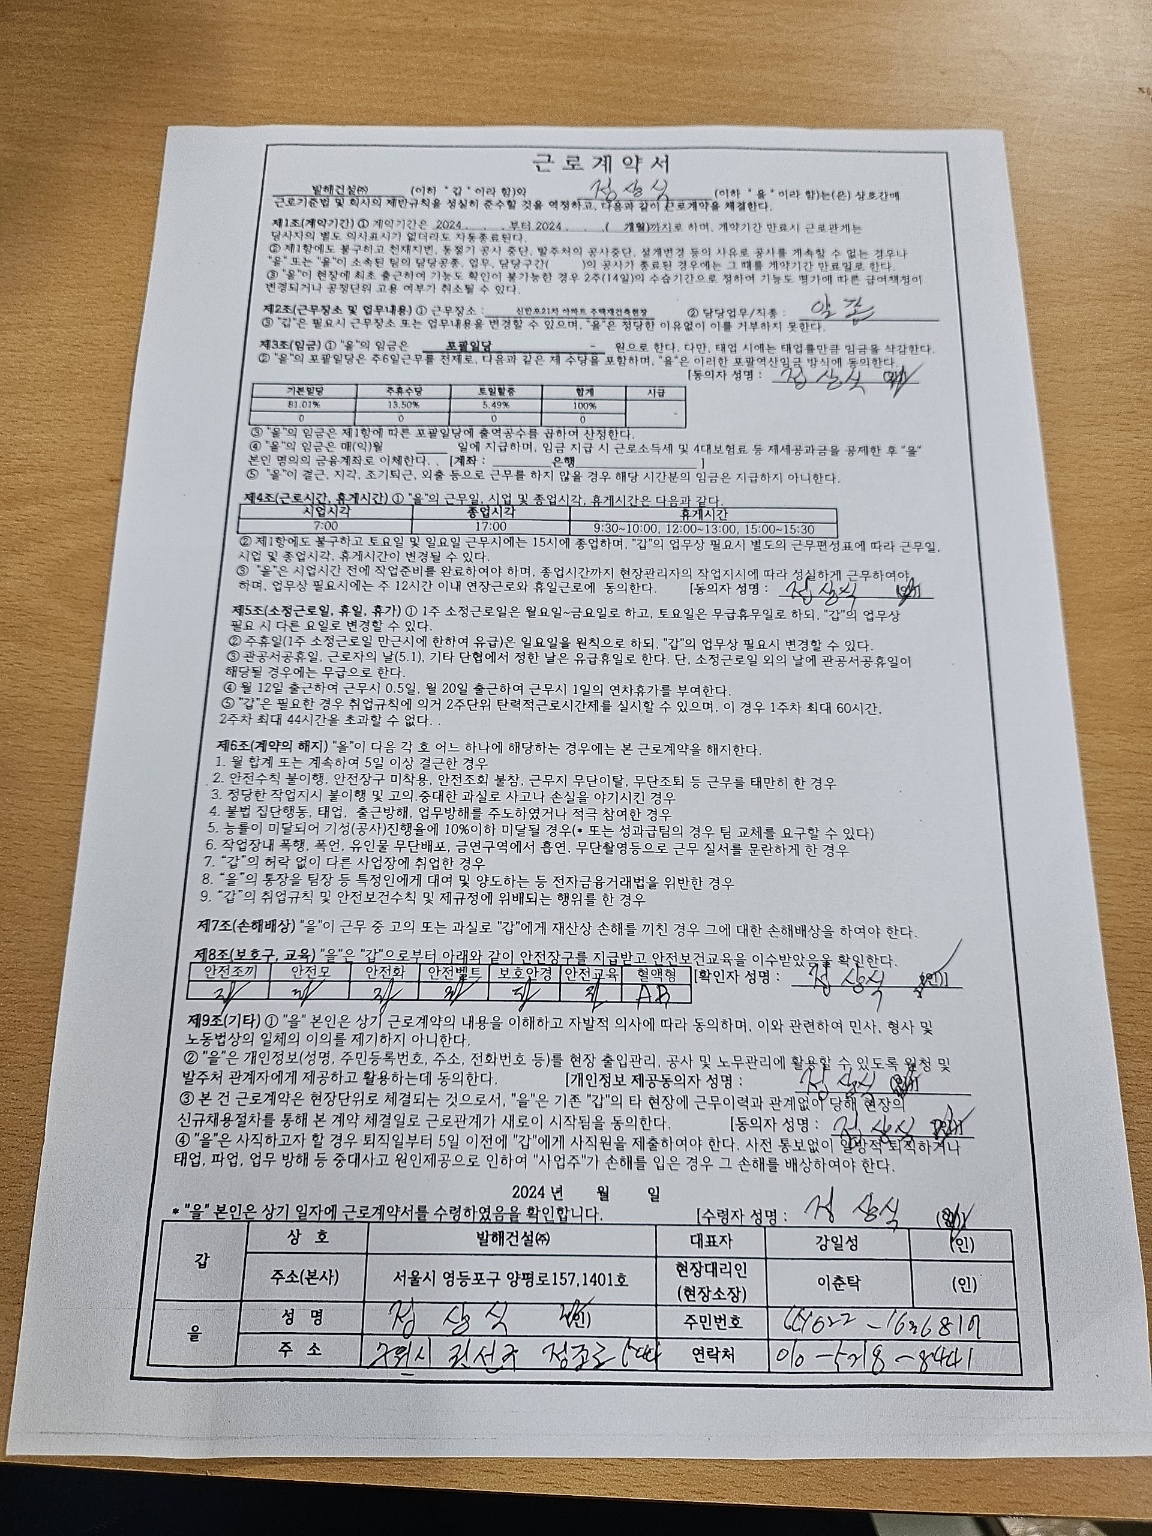 근로계약서
발해건설㈜ (이하 "갑"이라 함)와 정상식 (이하 "을"이라 함)는(은) 상호간에
근로기준법 및 회사의 제반규칙을 성실히 준수할 것을 약정하고, 다음과 같이 근로계약을 체결한다.
제1조(계약기간) ① 계약기간은 2024 . . . 부터 2024 . . . ( 개월)까지로 하며, 계약기간 만료시 근로관계는
당사자의 별도 의사표시가 없더라도 자동종료된다.
② 제1항에도 불구하고 천재지변, 동절기 공사 중단, 발주처의 공사중단, 설계변경 등의 사유로 공사를 계속할 수 없는 경우나
"을" 또는 "을"이 소속된 팀의 담당공종, 업무, 담당구간( )의 공사가 종료된 경우에는 그 때를 계약기간 만료일로 한다.
③ "을"이 현장에 최초 출근하여 기능도 확인이 불가능한 경우 2주(14일)의 수습기간으로 정하여 기능도 평가에 따른 급여책정이
변경되거나 공정단위 고용 여부가 취소될 수 있다.
제2조(근무장소 및 업무내용) ① 근무장소 : 신반포21차 아파트 주택재건축현장 ② 담당업무/직종 :
③ "갑"은 필요시 근무장소 또는 업무내용을 변경할 수 있으며, "을"은 정당한 이유없이 이를 거부하지 못한다.
제3조(임금) ① "을"의 임금은 포괄일당 - 원으로 한다. 다만, 태업 시에는 태업률만큼 임금을 삭감한다.
② "을"의 포괄일당은 주6일근무를 전제로, 다음과 같은 제 수당을 포함하며, "을"은 이러한 포괄역산임금 방식에 동의한다.
[동의자 성명 : 정상식 (인)]
기본일당 주휴수당 토일할증 합계 시급
81.01% 13.50% 5.49% 100% -
0 0 0 0
③ "을"의 임금은 제1항에 따른 포괄일당에 출역공수를 곱하여 산정한다.
④ "을"의 임금은 매(익)월 일에 지급하며, 임금 지급 시 근로소득세 및 4대보험료 등 제세공과금을 공제한 후 "을"
본인 명의의 금융계좌로 이체한다. . [계좌 : 은행 ]
⑤ "을"이 결근, 지각, 조기퇴근, 외출 등으로 근무를 하지 않을 경우 해당 시간분의 임금은 지급하지 아니한다.
제4조(근로시간, 휴게시간) ① "을"의 근무일, 시업 및 종업시각, 휴게시간은 다음과 같다.
시업시각 종업시각 휴게시간
7:00 17:00 9:30~10:00, 12:00~13:00, 15:00~15:30
② 제1항에도 불구하고 토요일 및 일요일 근무시에는 15시에 종업하며, "갑"의 업무상 필요시 별도의 근무편성표에 따라 근무일,
시업 및 종업시각, 휴게시간이 변경될 수 있다.
③ "을"은 시업시간 전에 작업준비를 완료하여야 하며, 종업시간까지 현장관리자의 작업지시에 따라 성실하게 근무하여야
하며, 업무상 필요시에는 주 12시간 이내 연장근로와 휴일근로에 동의한다. [동의자 성명 : 정상식 (인)]
제5조(소정근로일, 휴일, 휴가) ① 1주 소정근로일은 월요일~금요일로 하고, 토요일은 무급휴무일로 하되, "갑"의 업무상
필요 시 다른 요일로 변경할 수 있다.
② 주휴일(1주 소정근로일 만근시에 한하여 유급)은 일요일을 원칙으로 하되, "갑"의 업무상 필요시 변경할 수 있다.
③ 관공서공휴일, 근로자의 날(5.1), 기타 단협에서 정한 날은 유급휴일로 한다. 단, 소정근로일 외의 날에 관공서공휴일이
해당될 경우에는 무급으로 한다.
④ 월 12일 출근하여 근무시 0.5일, 월 20일 출근하여 근무시 1일의 연차휴가를 부여한다.
⑤ "갑"은 필요한 경우 취업규칙에 의거 2주단위 탄력적근로시간제를 실시할 수 있으며, 이 경우 1주차 최대 60시간,
2주차 최대 44시간을 초과할 수 없다. .
제6조(계약의 해지) "을"이 다음 각 호 어느 하나에 해당하는 경우에는 본 근로계약을 해지한다.
1. 월 합계 또는 계속하여 5일 이상 결근한 경우
2. 안전수칙 불이행, 안전장구 미착용, 안전조회 불참, 근무지 무단이탈, 무단조퇴 등 근무를 태만히 한 경우
3. 정당한 작업지시 불이행 및 고의.중대한 과실로 사고나 손실을 야기시킨 경우
4. 불법 집단행동, 태업, 출근방해, 업무방해를 주도하였거나 적극 참여한 경우
5. 능률이 미달되어 기성(공사)진행율에 10%이하 미달될 경우(* 또는 성과급팀의 경우 팀 교체를 요구할 수 있다)
6. 작업장내 폭행, 폭언, 유인물 무단배포, 금연구역에서 흡연. 무단촬영등으로 근무 질서를 문란하게 한 경우
7. "갑"의 허락 없이 다른 사업장에 취업한 경우
8. "을"의 통장을 팀장 등 특정인에게 대여 및 양도하는 등 전자금융거래법을 위반한 경우
9. "갑"의 취업규칙 및 안전보건수칙 및 제규정에 위배되는 행위를 한 경우
제7조(손해배상) "을"이 근무 중 고의 또는 과실로 "갑"에게 재산상 손해를 끼친 경우 그에 대한 손해배상을 하여야 한다.
제8조(보호구, 교육) "을"은 "갑"으로부터 아래와 같이 안전장구를 지급받고 안전보건교육을 이수받았음을 확인한다.
안전조끼 안전모 안전화 안전벨트 보호안경 안전교육 혈액형 [확인자 성명 : 정상식 (인)]
AB
제9조(기타) ① "을" 본인은 상기 근로계약의 내용을 이해하고 자발적 의사에 따라 동의하며, 이와 관련하여 민사, 형사 및
노동법상의 일체의 이의를 제기하지 아니한다.
② "을"은 개인정보(성명, 주민등록번호, 주소, 전화번호 등)를 현장 출입관리, 공사 및 노무관리에 활용할 수 있도록 원청 및
발주처 관계자에게 제공하고 활용하는데 동의한다. [개인정보 제공동의자 성명 : 정상식
③ 본 건 근로계약은 현장단위로 체결되는 것으로서, "을"은 기존 "갑"의 타 현장에 근무이력과 관계없이 당해 현장의
신규채용절차를 통해 본 계약 체결일로 근로관계가 새로이 시작됨을 동의한다. [동의자 성명 : 정상식
④ "을"은 사직하고자 할 경우 퇴직일부터 5일 이전에 "갑"에게 사직원을 제출하여야 한다. 사전 통보없이 일방적 퇴직하거나
태업, 파업, 업무 방해 등 중대사고 원인제공으로 인하여 "사업주"가 손해를 입은 경우 그 손해를 배상하여야 한다.
2024 년 월 일
* "을" 본인은 상기 일자에 근로계약서를 수령하였음을 확인합니다. [수령자 성명 : 정상식
갑 상 호 발해건설㈜ 대표자 강일성 (인)
주소(본사) 서울시 영등포구 양평로157,1401호 현장대리인 (현장소장) 이춘탁 (인)
을 성 명 정상식 (인) 주민번호
주 소 수원시 권선구 정조로 연락처